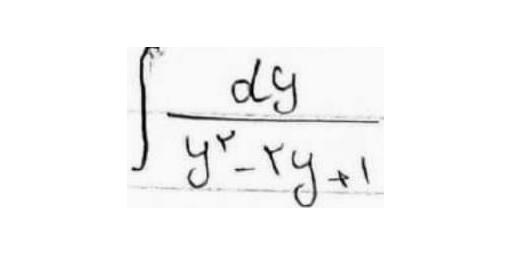 ∫ dy / (y^۲ - ۲y + ۱)